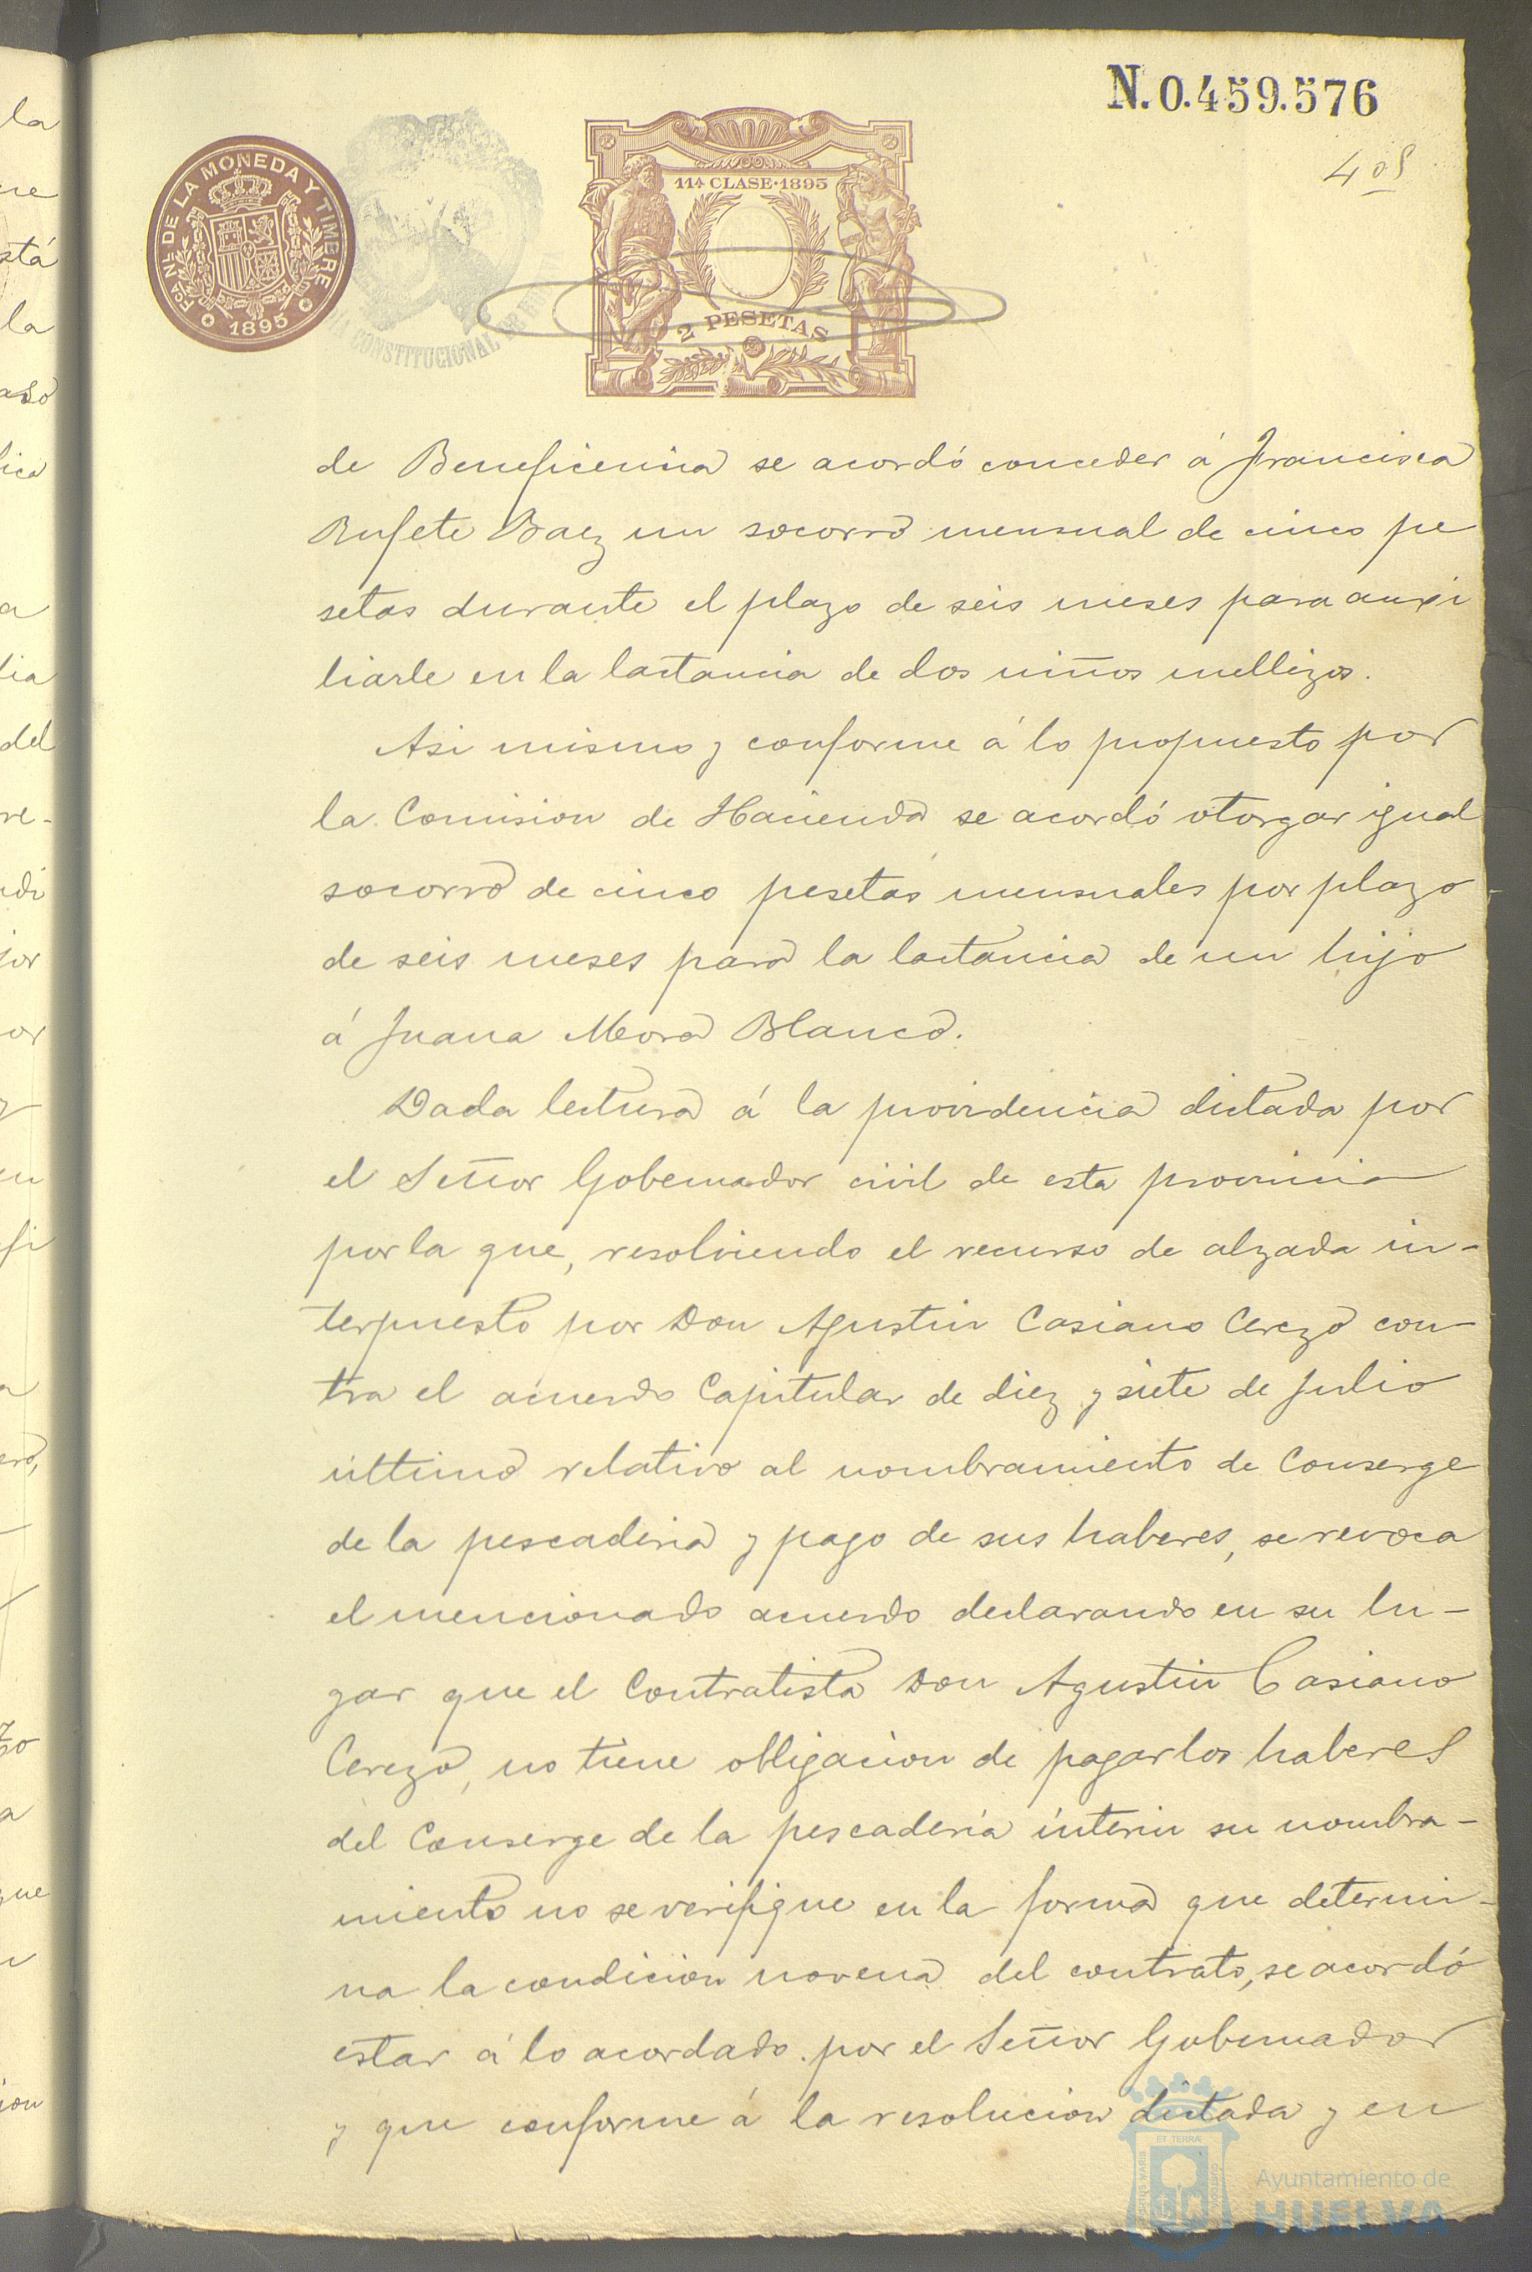 N.0.459.576
FCA NL DE LA MONEDA Y TIMBRE
1895
CONSTITUCIONAL DE
11ª CLASE·1895
2 PESETAS
de Beneficencia se acordó conceder á Francisca
Rufete Baez un socorro mensual de cinco pe
setas durante el plazo de seis meses para auxi
liarle en la lactancia de dos niños mellizos.
Asi mismo y conforme á lo propuesto por
la Comision de Hacienda se acordó otorgar igual
socorro de cinco pesetas mensuales por plazo
de seis meses para la lactancia de un hijo
á Juana Mora Blanco.
Dada lectura á la providencia dictada por
el Señor Gobernador civil de esta provincia
por la que, resolviendo el recurso de alzada in-
terpuesto por Don Agustin Casiano Cerezo con-
tra el acuerdo Capitular de diez y siete de Julio
último relativo al nombramiento de Conserge
de la pescaderia y pago de sus haberes, se revoca
el mencionado acuerdo declarando en su lu-
gar que el Contratista Don Agustin Casiano
Cerezo, no tiene obligacion de pagar los haberes
del Conserge de la pescadería ínterin su nombra-
miento no se verifique en la forma que determi-
na la condicion novena del contrato, se acordó
estar á lo acordado por el Señor Gobernador
y que conforme á la resolucion dictada y en
ET TERRÆ
Ayuntamiento de
HUELVA